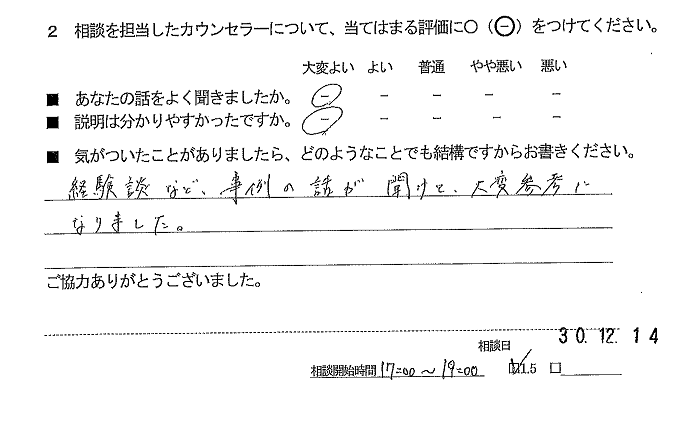 2 相談を担当したカウンセラーについて、当てはまる評価に○（⊖）をつけてください。
大変よい よい 普通 やや悪い 悪い
■ あなたの話をよく聞きましたか。 － － － － －
■ 説明は分かりやすかったですか。 － － － － －
■ 気がついたことがありましたら、どのようなことでも結構ですからお書きください。
経験談など、事例の話が聞けて、大変参考に
なりました。
ご協力ありがとうございました。
相談日 30.12.14
相談開始時間 17:00～19:00 ☑1.5 □